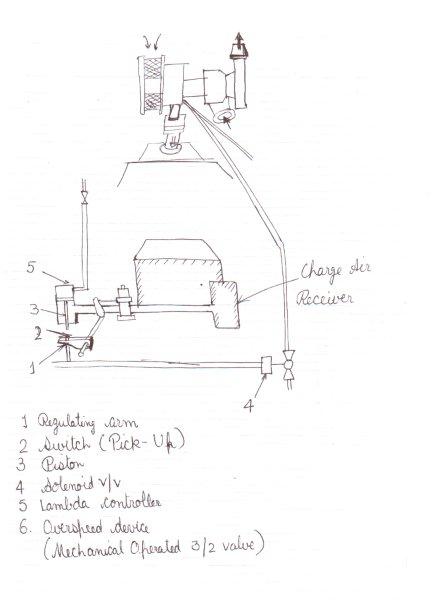 5
Charge Air
Receiver
3
2
1
4
1 Regulating arm
2 Switch (Pick-Up)
3 Piston
4 Solenoid v/v
5 Lambda controller
6. Overspeed device
(Mechanical Operated 3/2 valve)